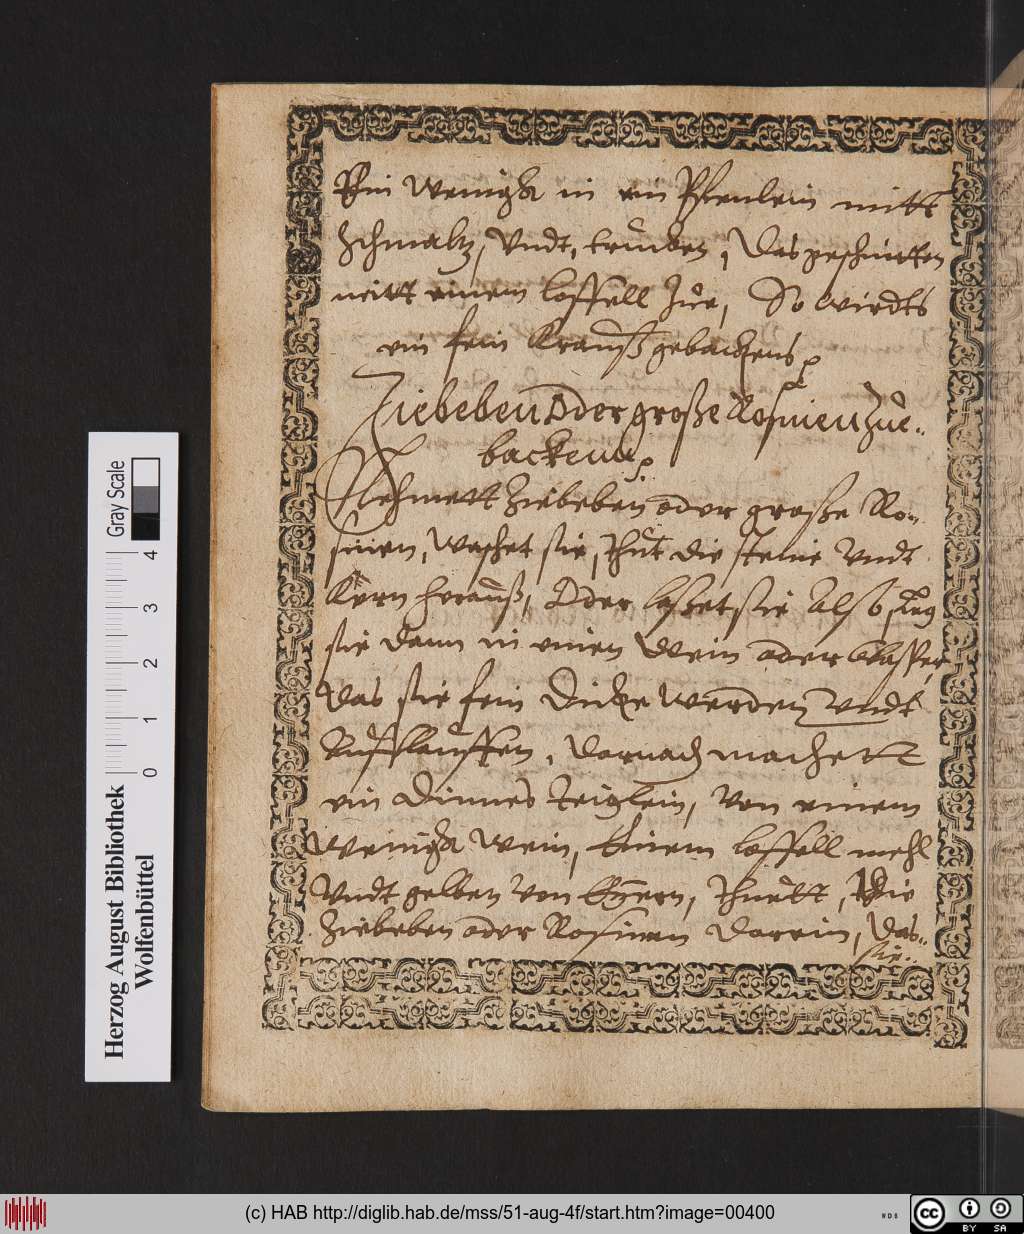 Ein wenigkh in ein Pfenlein mitt
Schmaltz, Vndt, trucken, das geschnitten
mitt einem löffell Zue, So wirdts
ein fein Krauß gebackens
Ziebeben Oder große Rosinen Zue..
backenn
Nehmett Ziebeben oder große Ro=
sinen, waschet sie, thut die steine Vndt
Kern herauß, Oder laßet sie also
sie dann in einen Wein oder Wasser,
das sie fein dicke werden Vndt
Aufflauffen, darnach machett
ein dinnes teiglein, Von einem
wenigkh wein, Einem löffell mehl
Vndt gelben Von Eyern, thuett, die
Ziebeben oder Rosinen darein, das..
sie..
Gray Scale
0 1 2 3 4
Herzog August Bibliothek
Wolfenbüttel
(c) HAB http://diglib.hab.de/mss/51-aug-4f/start.htm?image=00400
WDB
cc BY SA